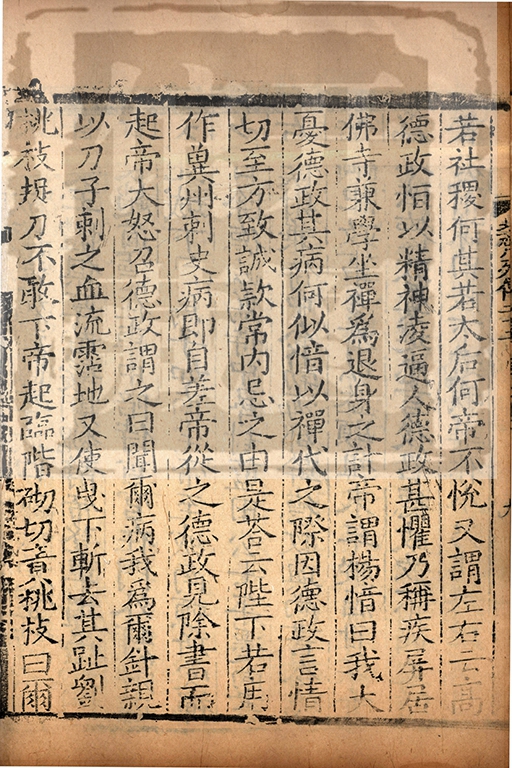 若社稷何其若太后何帝不悅又謂左右云高
德政恒以精神凌逼人德政甚懼乃稱疾屏居
佛寺兼學坐禪爲退身之計帝謂楊愔曰我大
憂德政其病何似愔以禪代之際因德政言情
切至方致誠款常内忌之由是荅云陛下若用
作兾州刺史病即自差帝從之德政見除書而
起帝大怒召德政謂之曰聞爾病我爲爾針親
以刀子刺之血流霑地又使曳下斬去其趾劉
桃枝捉刀不敢下帝起臨階砌切責桃枝曰爾